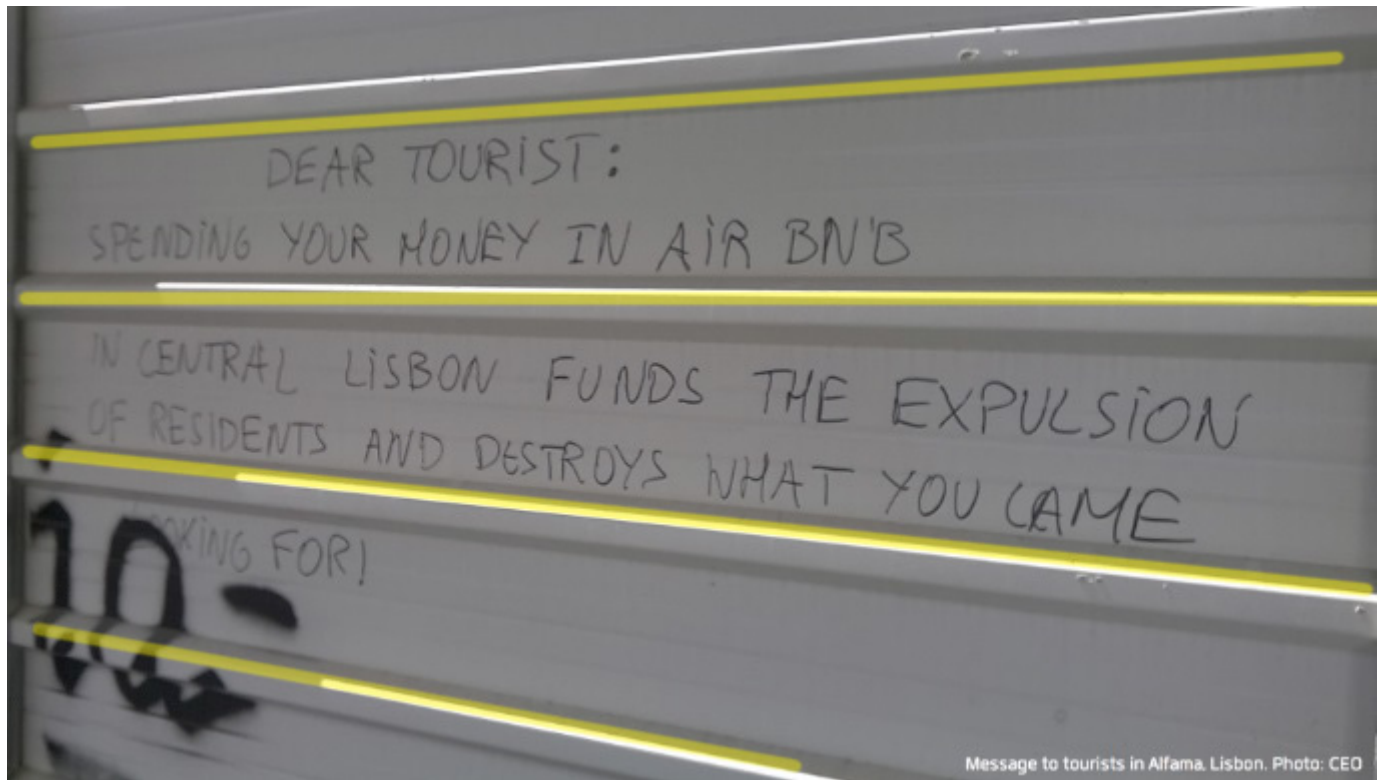 DEAR TOURIST:
SPENDING YOUR MONEY IN AIR BN'B
IN CENTRAL LISBON FUNDS THE EXPULSION
OF RESIDENTS AND DESTROYS WHAT YOU CAME
LOOKING FOR!
10-
Message to tourists in Alfama, Lisbon. Photo: CEO